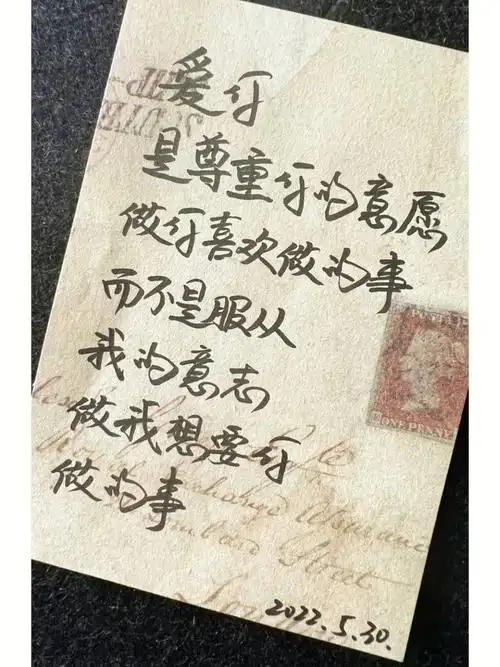 爱你
是尊重你的意愿
做你喜欢做的事
而不是服从
我的意志
做我想要你
做的事
ONE PENNY
Exchange Assurance
Street
2022.5.30.